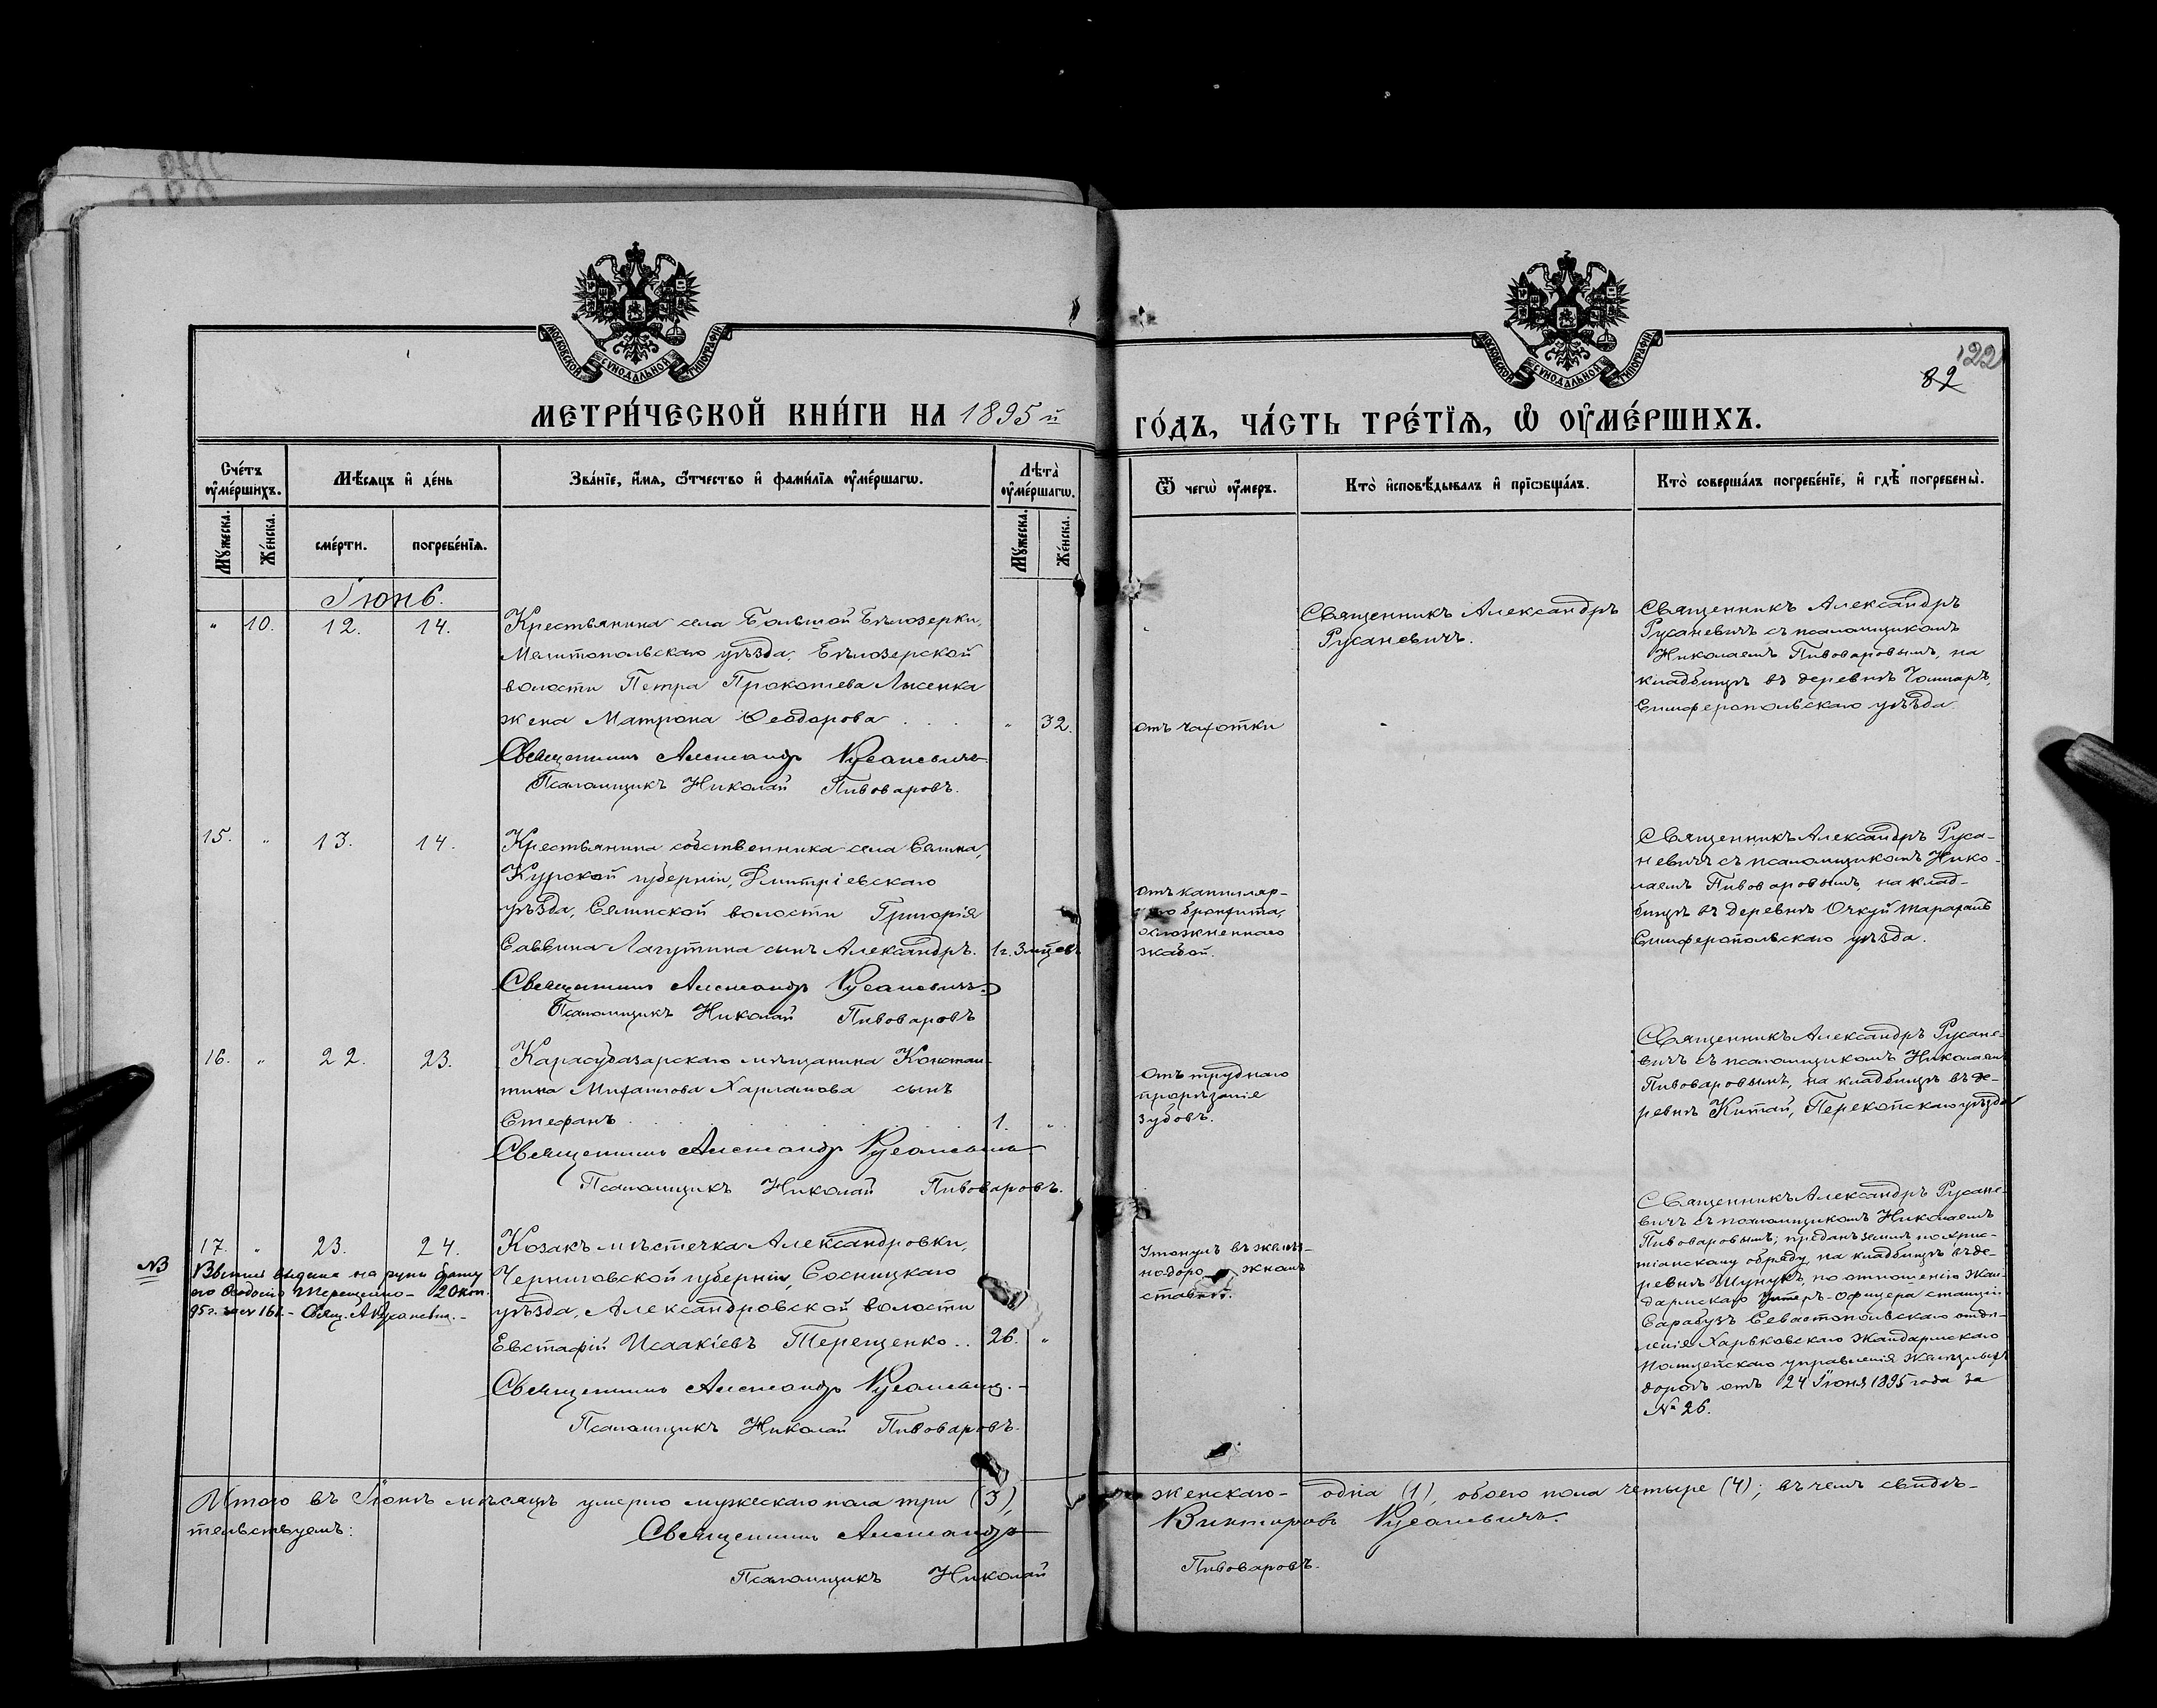 МОСКОВСКОЙ СѴНОДАЛЬНОЙ ТИПОГРАФІИ
МОСКОВСКОЙ СѴНОДАЛЬНОЙ ТИПОГРАФІИ
122
82
МЕТРИ́ЧЕСКОЙ КНИ́ГИ НА 1895 й
ГО́ДЪ, ЧА́СТЬ ТРЕ́ТЇѦ, Ѡ ОУМЕ́РШИХЪ.
Сче́тъ оуме́ршихъ.
Мꙋ́жеска.
Же́нска.
Мѣ́сяцъ и де́нь
сме́рти.
погребе́нїѧ.
Зва́нїе, и́мѧ, ѻ́тчество и фами́лїѧ оуме́ршагѡ.
Лѣта̀ оуме́ршагѡ.
Мꙋ́жеска.
Же́нска.
Ѿ чегѡ̀ оу́меръ.
Кто̀ и҆сповѣ́дывалъ и҆ прїѡбща́лъ.
Кто̀ соверша́лъ погребе́нїе, и҆ гдѣ̀ погребены̀.
Іюнь.
" 10. 12. 14.
Крестьянина села Большой Бѣлозерки,
Мелитопольскаго уѣзда, Бѣлозерской
волости Петра Прокопіева Лысенка
жена Матрона Ѳеодорова . . . " 32.
Священникъ Александръ Русаневичъ
Псаломщикъ Николай Пивоваровъ.
отъ чахотки
Священникъ Александръ
Русаневичъ.
Священникъ Александръ
Русаневичъ съ псаломщикомъ
Николаемъ Пивоваровымъ, на
кладбищѣ въ деревнѣ
Симферопольскаго уѣзда.
15. " 13. 14.
Крестьянина собственника села
Курской губерніи, Дмитріевскаго
уѣзда, волости Григорія
Саввина Лагутина сынъ Александръ. 1 г. 3 мѣс.
Священникъ Александръ Русаневичъ
Псаломщикъ Николай Пивоваровъ
отъ капилляр-
наго бронхита,
осложненнаго
жабой.
Священникъ Александръ Руса-
невичъ съ псаломщикомъ Нико-
лаемъ Пивоваровымъ, на клад-
бищѣ въ деревнѣ
Симферопольскаго уѣзда.
16. " 22. 23.
Карасубазарскаго мѣщанина Констан-
тина Михаилова Харламова сынъ
Стефанъ . . . . 1. "
Священникъ Александръ Русаневичъ
Псаломщикъ Николай Пивоваровъ.
Отъ труднаго
прорѣзанія
зубовъ.
Священникъ Александръ Русане-
вичъ съ псаломщикомъ Николаемъ
Пивоваровымъ, на кладбищѣ въ де-
ревнѣ Китай, Перекопскаго уѣзда
17. " 23. 24.
NB
отцу
его Терещенко 20 коп.
95 г. Свящ. А Русаневич.
Козакъ мѣстечка Александровки,
Черниговской губерніи, Сосницкаго
уѣзда, Александровской волости
Евстафій Исаакіевъ Терещенко . . 26. "
Священникъ Александръ Русаневич.
Псаломщикъ Николай Пивоваровъ.
Утонулъ въ желѣз-
нодорожномъ
ставкѣ.
Священникъ Александръ Русане-
вичъ съ псаломщикомъ Николаемъ
Пивоваровымъ; преданъ землѣ по хрис-
тіанскому обряду, на кладбищѣ въ де-
ревнѣ Шунукъ, по отношенію жан-
дармскаго унтеръ-офицера станціи
Сарабузъ Севастопольскаго отдѣ-
ленія Харьковскаго Жандармскаго
Полицейскаго управленія желѣзныхъ
дорогъ отъ 24 Іюня 1895 года за
№ 26.
Итого въ Іюнѣ мѣсяцѣ умерло мужескаго пола три (3),
женскаго - одна (1), обоего пола четыре (4); въ чемъ свидѣ-
тельствуемъ:
Священникъ Александръ
Викторовъ Русаневичъ.
Псаломщикъ Николай
Пивоваровъ.